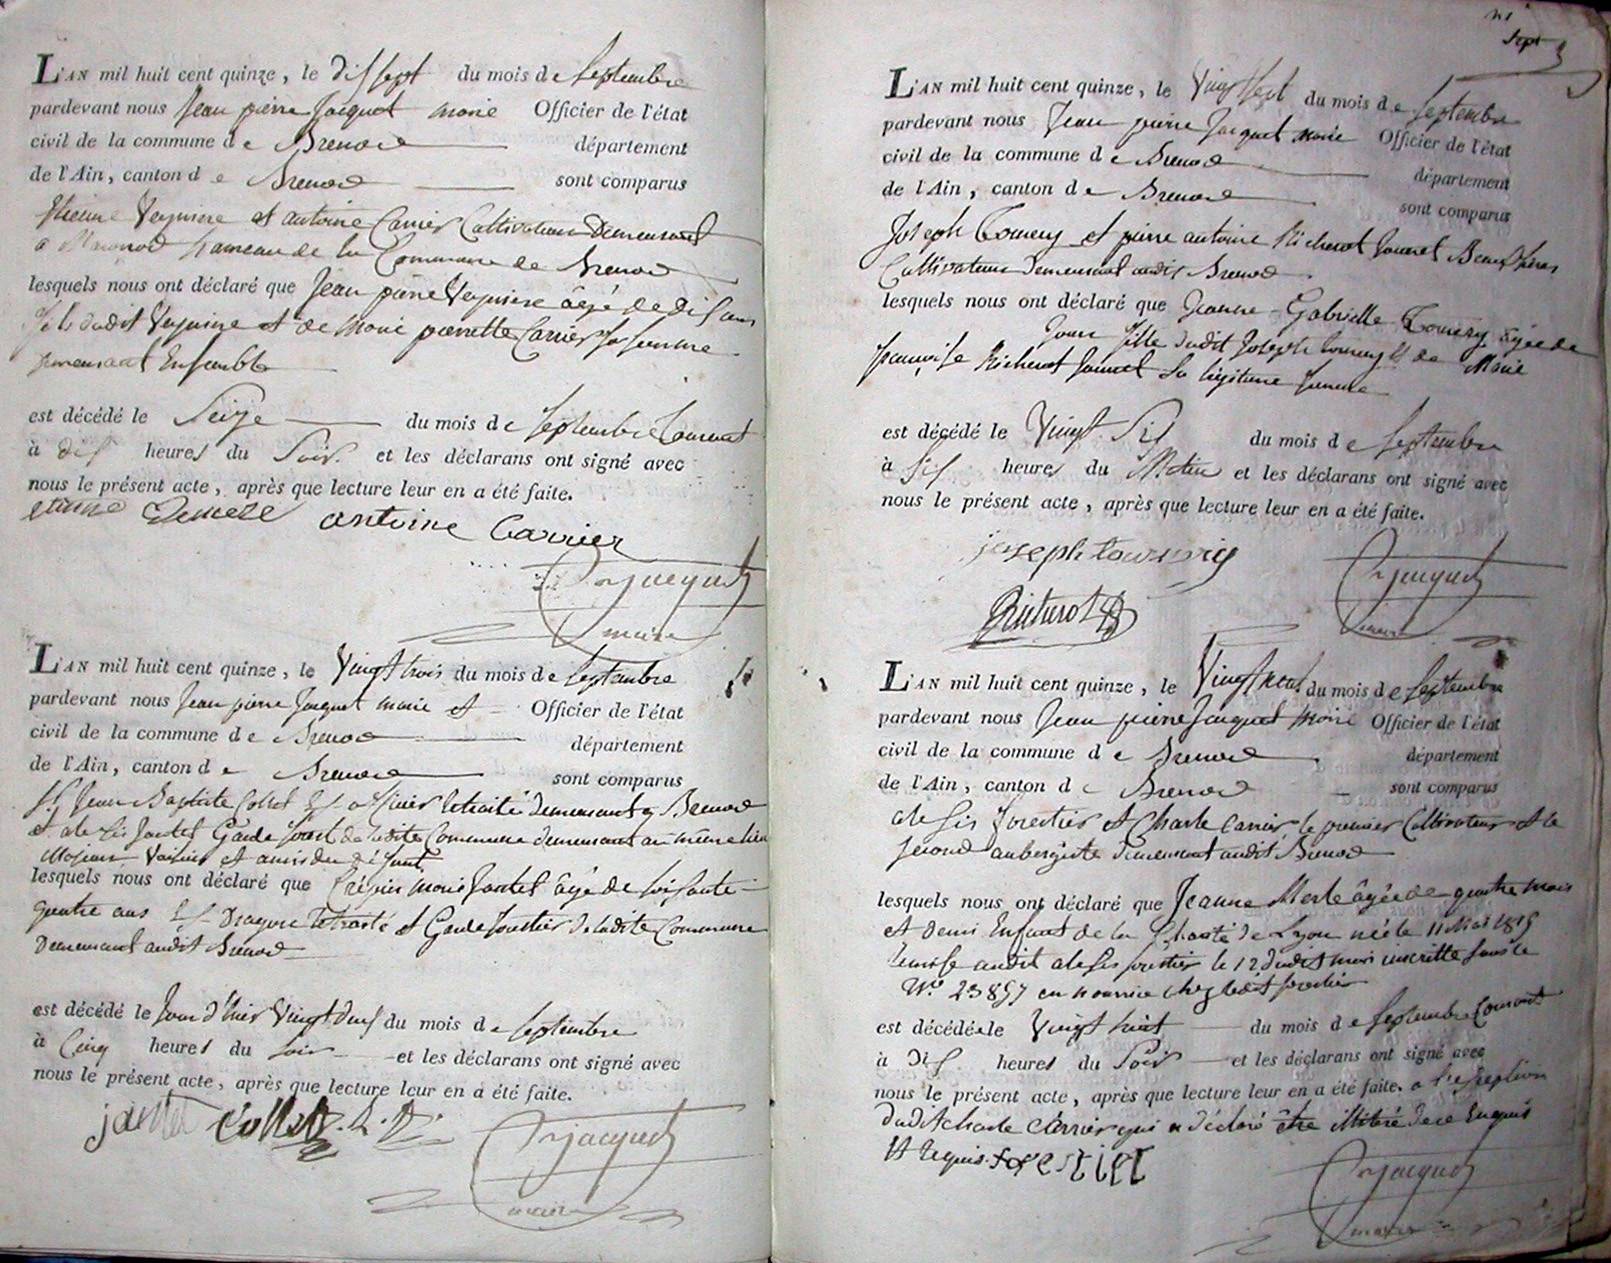 L'AN mil huit cent quinze, le dix sept du mois de Septembre
pardevant nous Jean pierre Jacquet maire Officier de l'état
civil de la commune de Brenod département
de l'Ain, canton de Brenod sont comparus
et antoine Carrier Cultivateurs Demeurant
a hameau de la Commune de Brenod
lesquels nous ont déclaré que Jean pierre âgé de dix ans
fils dudit et de marie pierrette Carrier sa femme
Demeurant Ensemble
est décédé le Seize du mois de Septembre Courant
à dix heures du Soir et les déclarans ont signé avec
nous le présent acte, après que lecture leur en a été faite.
antoine Carrier
Jacquet
maire
L'AN mil huit cent quinze, le Vingt trois du mois de Septembre
pardevant nous Jean pierre Jacquet maire et Officier de l'état
civil de la commune de Brenod département
de l'Ain, canton de Brenod sont comparus
Jean Baptiste Collet officier Retraité demeurant a Brenod
et alexis Jantet Garde forest. de ladite Commune demeurant au même lieu
Majeurs Voisins et amis du défunt
lesquels nous ont déclaré que marie Jantet âgé de Soixante
quatre ans Dragons Retraité et Garde forestier de ladite Commune
Demeurant audit Brenod
est décédé le Jour d'hier Vingt deux du mois de Septembre
à Cinq heures du Soir et les déclarans ont signé avec
nous le présent acte, après que lecture leur en a été faite.
jantet Collet
Jacquet
maire
Sept
L'AN mil huit cent quinze, le Vingt Sept du mois de Septembre
pardevant nous Jean pierre Jacquet maire Officier de l'état
civil de la commune de Brenod département
de l'Ain, canton de Brenod sont comparus
Joseph Tournery et pierre antoine Richerot Jounet Beaux freres
Cultivateurs Demeurant audit Brenod
lesquels nous ont déclaré que Jeanne Gabrielle Tournery âgée de
Jours fille dudit Joseph Tournery et de Marie
françoise Richerot Jounet Sa legitime femme
est décédé le Vingt Six du mois de Septembre
à Six heures du Matin et les déclarans ont signé avec
nous le présent acte, après que lecture leur en a été faite.
joseph tournery
Jacquet
Richerot
maire
L'AN mil huit cent quinze, le Vingt neuf du mois de Septembre
pardevant nous Jean pierre Jacquet maire Officier de l'état
civil de la commune de Brenod département
de l'Ain, canton de Brenod sont comparus
alexis forestier et Charle Carrier le premier Cultivateur et le
second aubergiste demeurant audit Brenod
lesquels nous ont déclaré que Jeanne Merle âgée de quatre mois
et demi Enfant de la Charité de Lyon née le 11 Mai 1815
remise audit alexis forestier le 12 dudit mois inscritte sous le
N.º 23857 en nourrice chez ledit forestier
est décédée le Vingt huit du mois de Septembre Courant
à Dix heures du Soir et les déclarans ont signé avec
nous le présent acte, après que lecture leur en a été faite. a l'exception
dudit charle Carrier qui a déclaré être illitéré de ce Enquis
et Requis forestier
Jacquet
maire